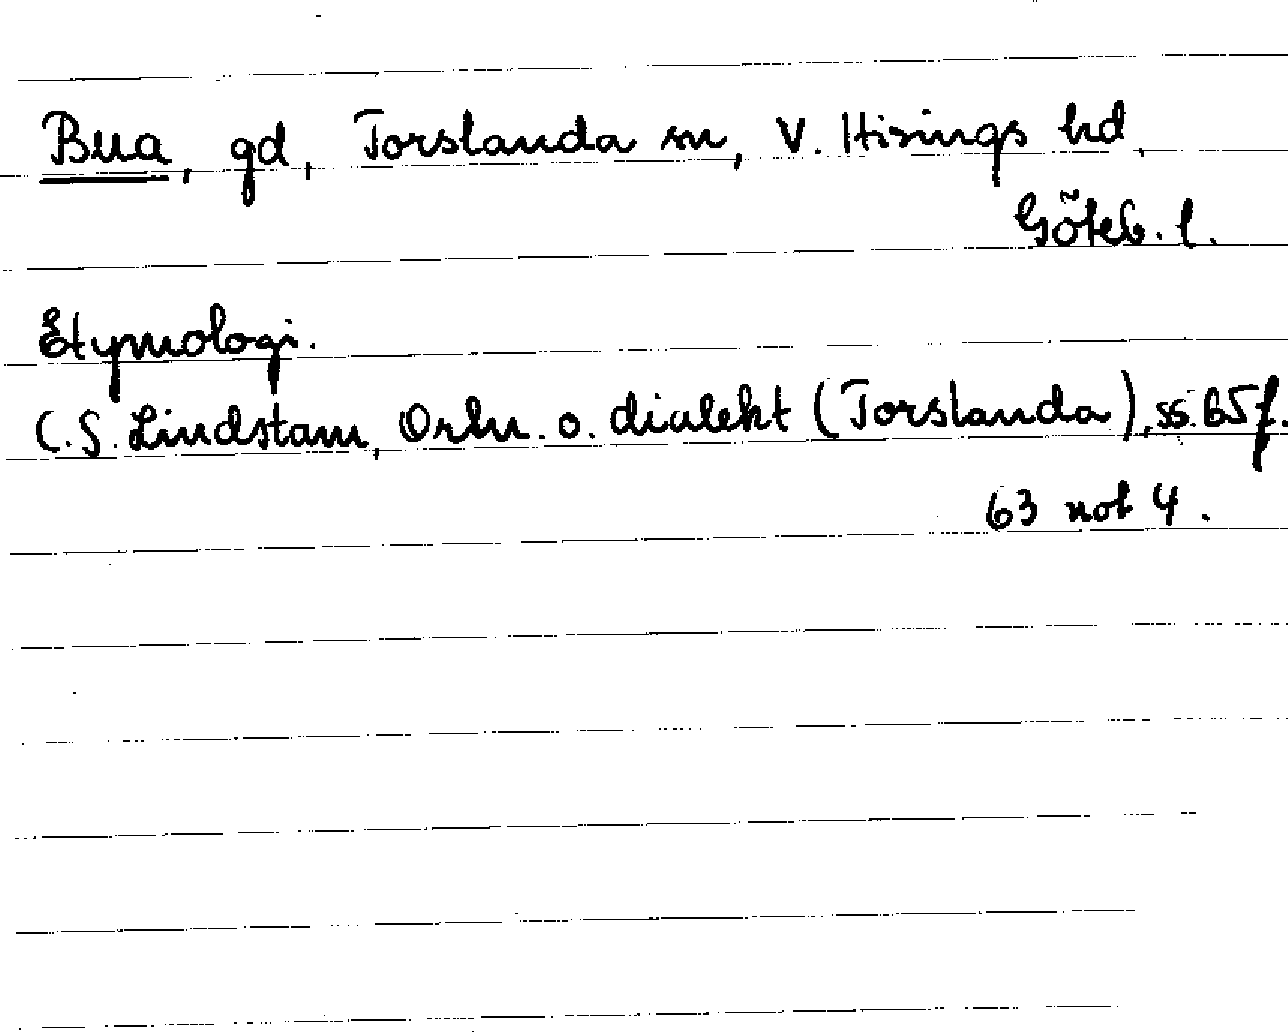 Bua, gd, Torslanda sn, V. Hisings hd,
Göteb. l.
Etymologi.
C. S. Lindstam, Ortn. o. dialekt (Torslanda), ss. 65 f.
63 not 4.